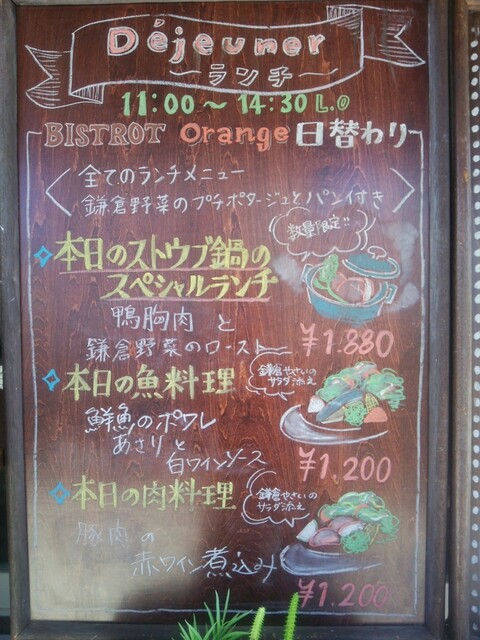 Déjeuner
~ランチ~
11:00~14:30 L.O
BISTROT Orange 日替わり
全てのランチメニュー
鎌倉野菜のプチポタージュとパン付き
数量限定!!
本日のストウブ鍋の
スペシャルランチ
鴨胸肉と
鎌倉野菜のロースト
¥1.880
本日の魚料理
鎌倉やさいの
サラダ添え
鮮魚のポワレ
あさりと
白ワインソース
¥1.200
本日の肉料理
鎌倉やさいの
サラダ添え
豚肉の
赤ワイン煮込み
¥1.200